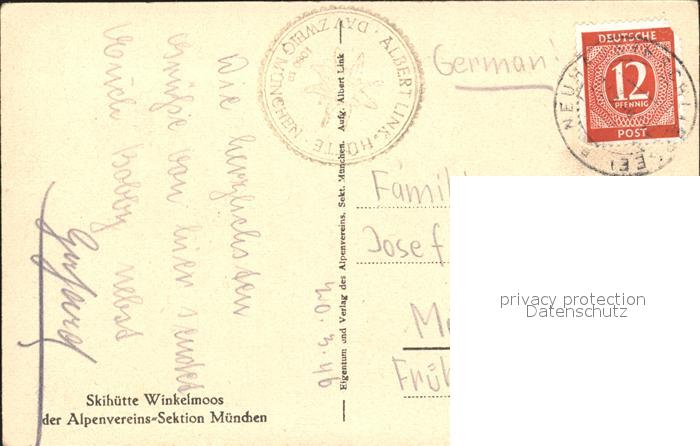 Die herzlichsten
Grüße von hier sendet
Euch Bobby nebst
ALBERT LINK-HÜTTE · DAV ZWEIG MÜNCHEN ·
1068 m
German!
DEUTSCHE
12
PFENNIG
POST
Famil
Josef
M
Früh
privacy protection
Datenschutz
40.3.46
Eigentum und Verlag des Alpenvereins, Sekt. München. Aufg. Albert Link
Skihütte Winkelmoos
der Alpenvereins-Sektion München